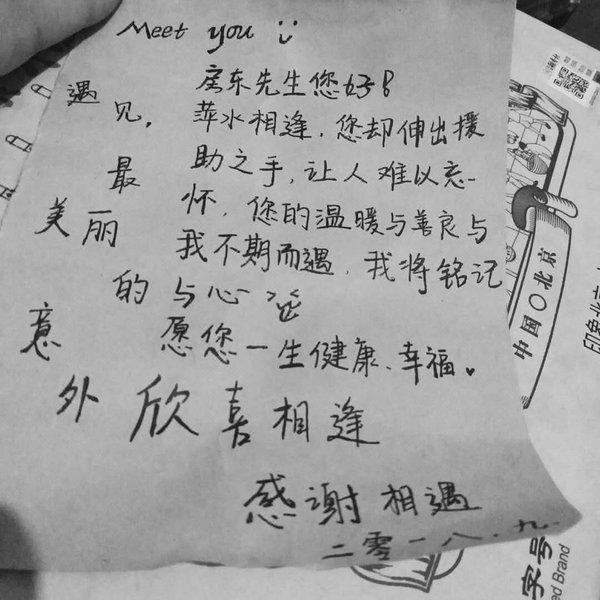 Meet you
遇见,最美丽的意外
房东先生您好
萍水相逢,您却伸出援
助之手,让人难以忘
怀,您的温暖与善良与
我不期而遇,我将铭记
与心
愿您一生健康、幸福。
欣喜相逢
感谢相遇
二零一八.九.
中国〇北京
印象北京
字号
ed Brand